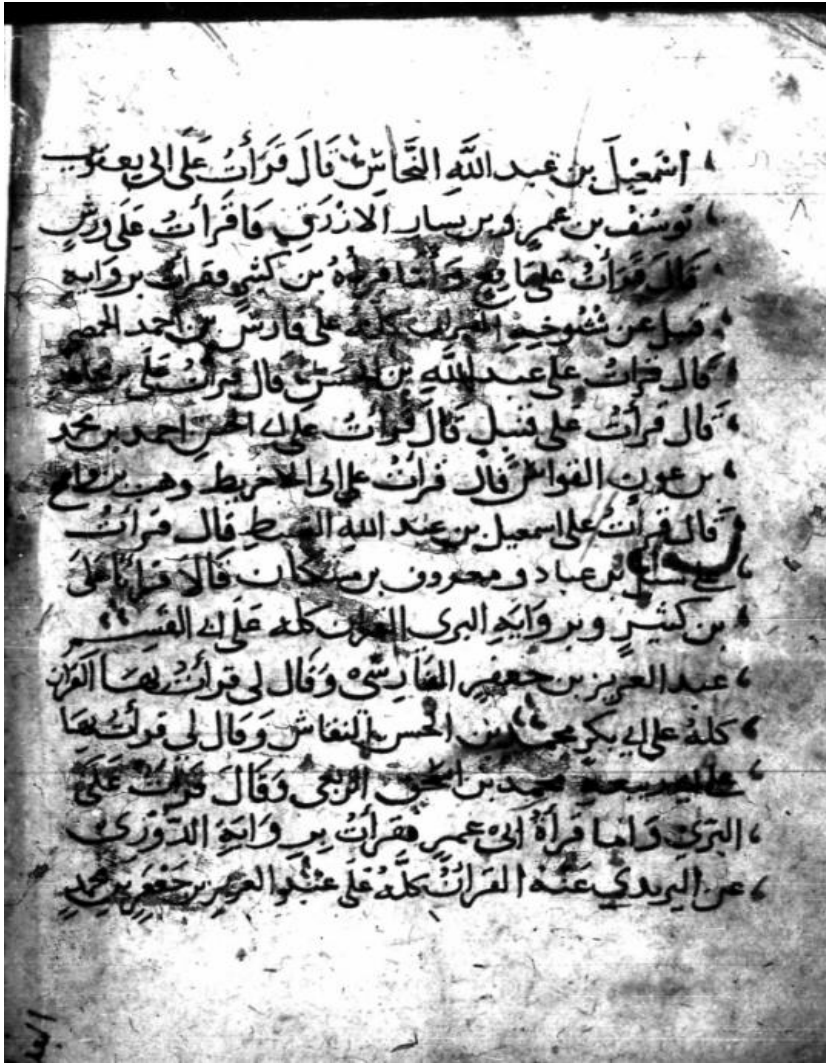 اسمعيل بن عبد الله النحاس قال قرأت على ابي يعقوب
يوسف بن عمرو بن يسار الازرق قال قرأت على ورش
قال قرأت على نافع وأما قرأة بن كثير فقرأت بروايه
قنبل عن شيوخه القران كله على فارس بن احمد الحمصي
قال قرأت على عبد الله بن الحسين قال قرأت على بن مجاهد
قال قرأت على قنبل قال قرأت على ابي الحسن احمد بن محمد
بن عون القواس قال قرأت على ابى الاخريط وهب بن واضح
قال قرأت على اسمعيل بن عبد الله القسط قال قرأت
على بن عباد و معروف بن مشكان قالا قرأنا على
بن كثير وبروايه البزى القران كله على ابي القسم
عبد العزيز بن جعفر الفارسى وقال لى قرأت بها القران
كله على ابي بكر محمد بن الحسن النقاش وقال لى قرأت بها
على ابي ربيعه محمد بن اسحق الربعى وقال قرأت على
البزي واما قرأة ابى عمرو فقرأت بروايه الدوري
عن اليزيدي عنه القران كله على عبد العزيز بن جعفر بن محمد